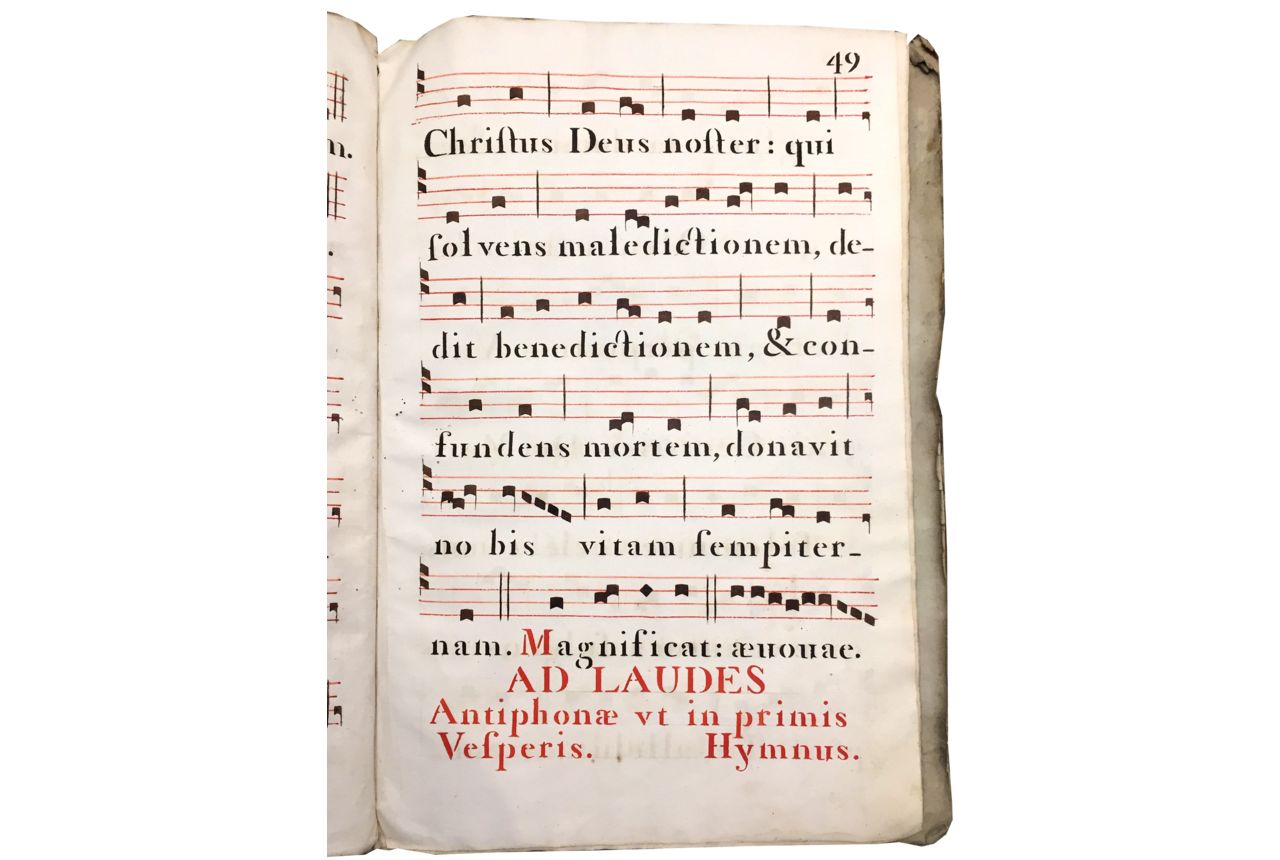 49
m.
Chriſtus Deus noſter: qui
.
ſolvens maledictionem, de-
dit benedictionem, & con-
fundens mortem, donavit
no bis vitam ſempiter-
nam. Magnificat: æuouae.
AD LAUDES
Antiphonæ vt in primis
Veſperis. Hymnus.